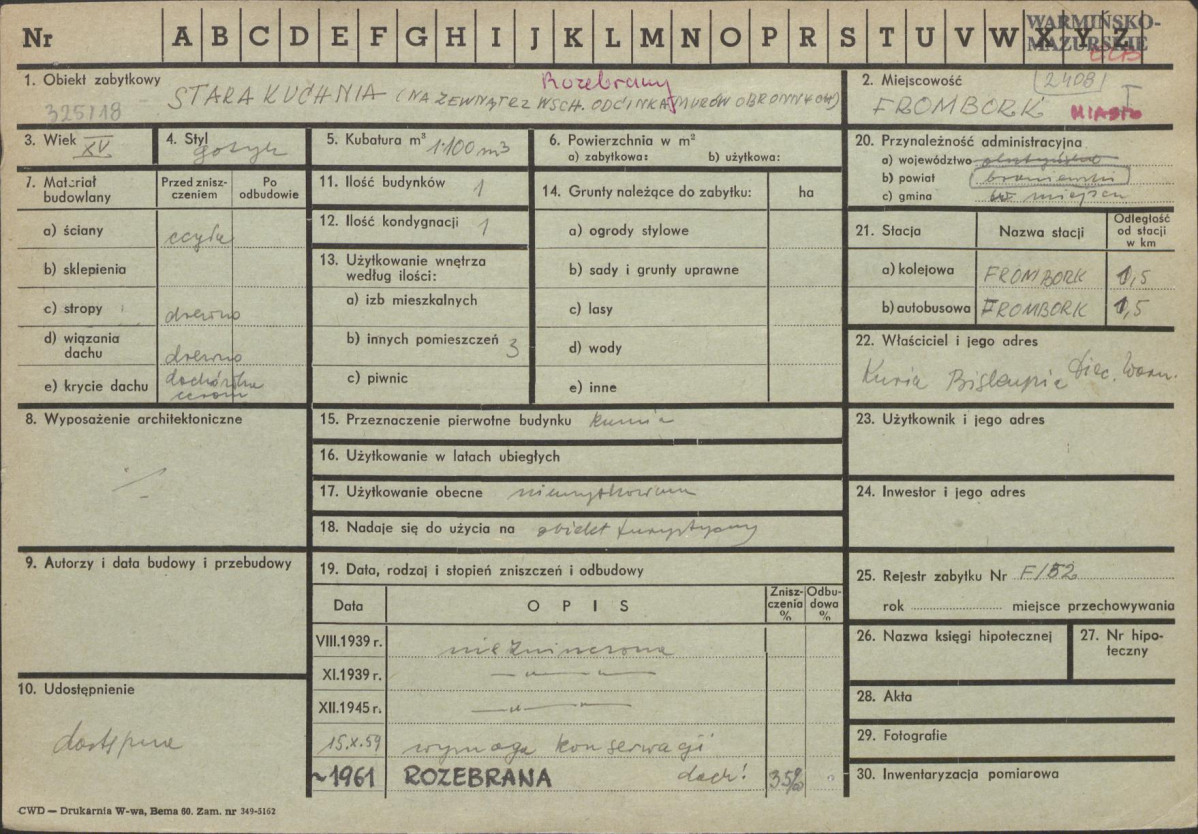 Nr A B C D E F G H I J K L M N O P R S T U V W X Y Z
WARMIŃSKO-
MAZURSKIE
1. Obiekt zabytkowy
Rozebrany
325/18
STARA KUCHNIA (NA ZEWNĄTRZ WSCH. ODCINKA MURÓW OBRONNYCH)
2. Miejscowość
2408
FROMBORK MIASTO
3. Wiek XV
4. Styl gotyk
5. Kubatura m³ 1.100 m3
6. Powierzchnia w m²
a) zabytkowa: b) użytkowa:
20. Przynależność administracyjna
a) województwo olsztyńskie
b) powiat braniewski
c) gmina w miejscu
7. Materiał budowlany
Przed zniszczeniem
Po odbudowie
a) ściany cegła
b) sklepienia
c) stropy drewno
d) wiązania dachu drewno
e) krycie dachu dachówka ceram
11. Ilość budynków 1
12. Ilość kondygnacji 1
13. Użytkowanie wnętrza
według ilości:
a) izb mieszkalnych
b) innych pomieszczeń 3
c) piwnic
14. Grunty należące do zabytku: ha
a) ogrody stylowe
b) sady i grunty uprawne
c) lasy
d) wody
e) inne
21. Stacja Nazwa stacji Odległość od stacji w km
a) kolejowa FROMBORK 1,5
b) autobusowa FROMBORK 1,5
22. Właściciel i jego adres
Kuria Biskupia Diec. Warm.
8. Wyposażenie architektoniczne
15. Przeznaczenie pierwotne budynku kuchnia
16. Użytkowanie w latach ubiegłych
17. Użytkowanie obecne nieużytkowana
18. Nadaje się do użycia na obiekt turystyczny
23. Użytkownik i jego adres
24. Inwestor i jego adres
9. Autorzy i data budowy i przebudowy
19. Data, rodzaj i stopień zniszczeń i odbudowy
Data OPIS Zniszczenia % Odbudowa %
VIII.1939 r. niezniszczona
XI.1939 r. — " —
XII.1945 r. — " —
15.X.59 wymaga konserwacji
dach! 35%
~1961 ROZEBRANA
25. Rejestr zabytku Nr F/52
rok miejsce przechowywania
26. Nazwa księgi hipotecznej
27. Nr hipoteczny
28. Akta
29. Fotografie
30. Inwentaryzacja pomiarowa
10. Udostępnienie
dostępna
CWD — Drukarnia W-wa, Bema 60. Zam. nr 349-5162